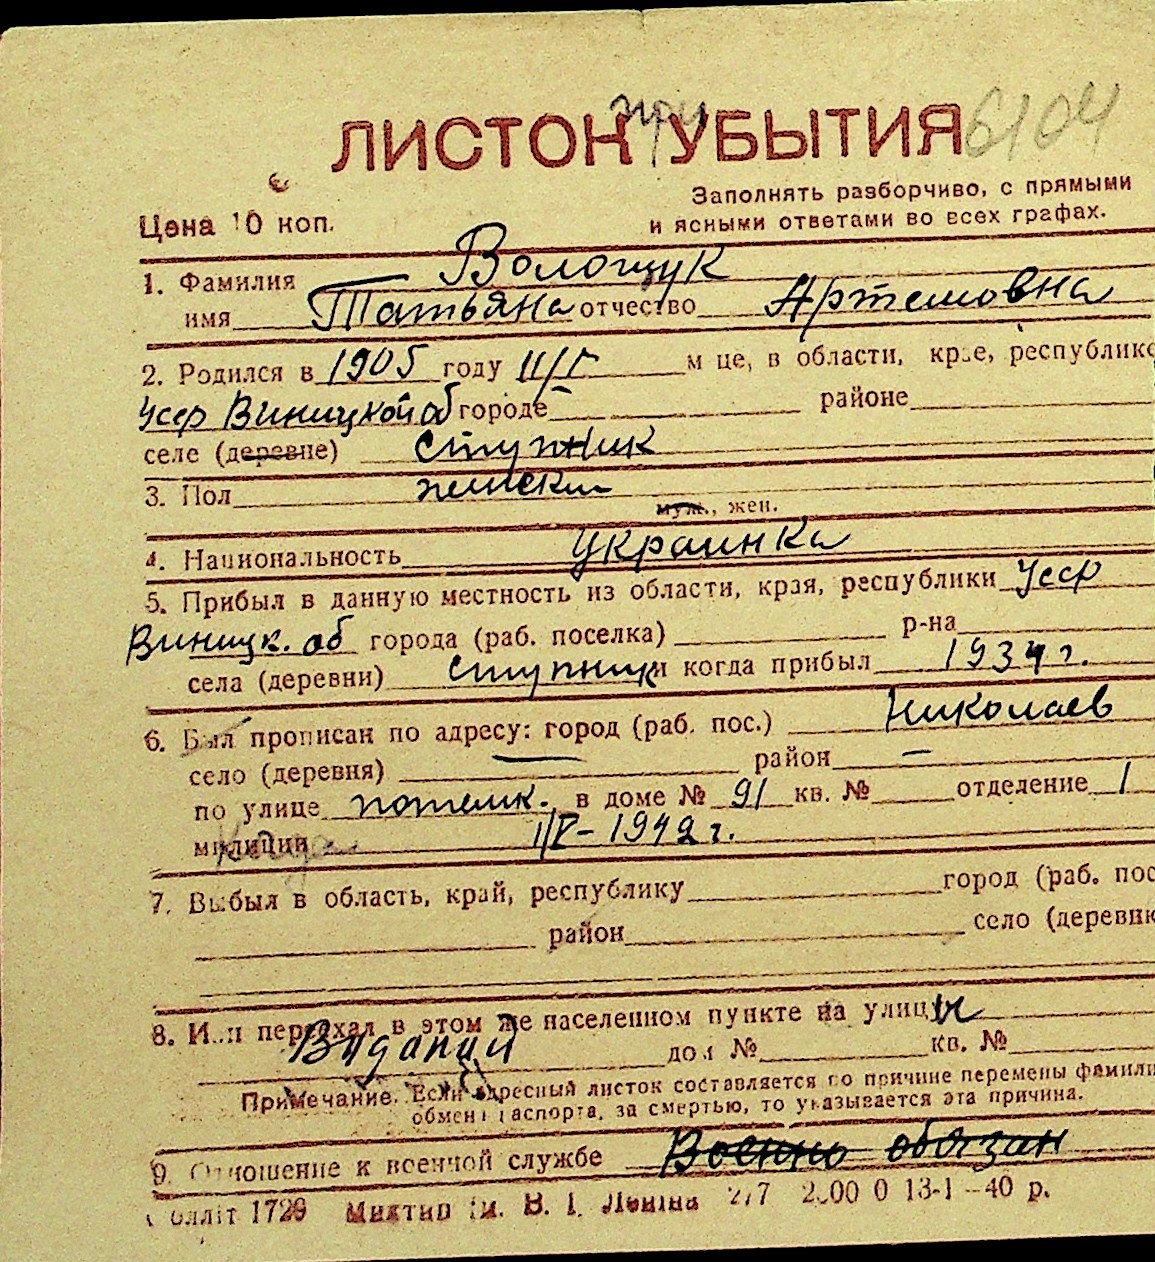 ЛИСТОК УБЫТИЯ 6104
Заполнять разборчиво, с прямыми
Цена 10 коп. и ясными ответами во всех графах.
1. Фамилия Волощук
имя Татьяна отчество Артемовна
2. Родился в 1905 году м це, в области, крае, республике
Усср Виницкой об городе районе
селе (деревне) ступник
3. Пол женски
муж., жен.
4. Национальность украинка
5. Прибыл в данную местность из области, края, республики Усср
Виницк. об города (раб. поселка) р-на
села (деревни) ступник и когда прибыл 1934 г.
6. Был прописан по адресу: город (раб. пос.) Николаев
село (деревня) — район —
по улице потемк. в доме № 91 кв. № отделение 1
милиции 1942 г.
7. Выбыл в область, край, республику город (раб. пос
район село (деревню
8. Или переехал в этом же населенном пункте на улицу
дом № кв. №
Примечание. Если адресный листок составляется по причине перемены фамилии
обмена паспорта, за смертью, то указывается эта причина.
9. Отношение к военной службе Военно обязан
1729 В. І. Леніна 13-1—40 р.